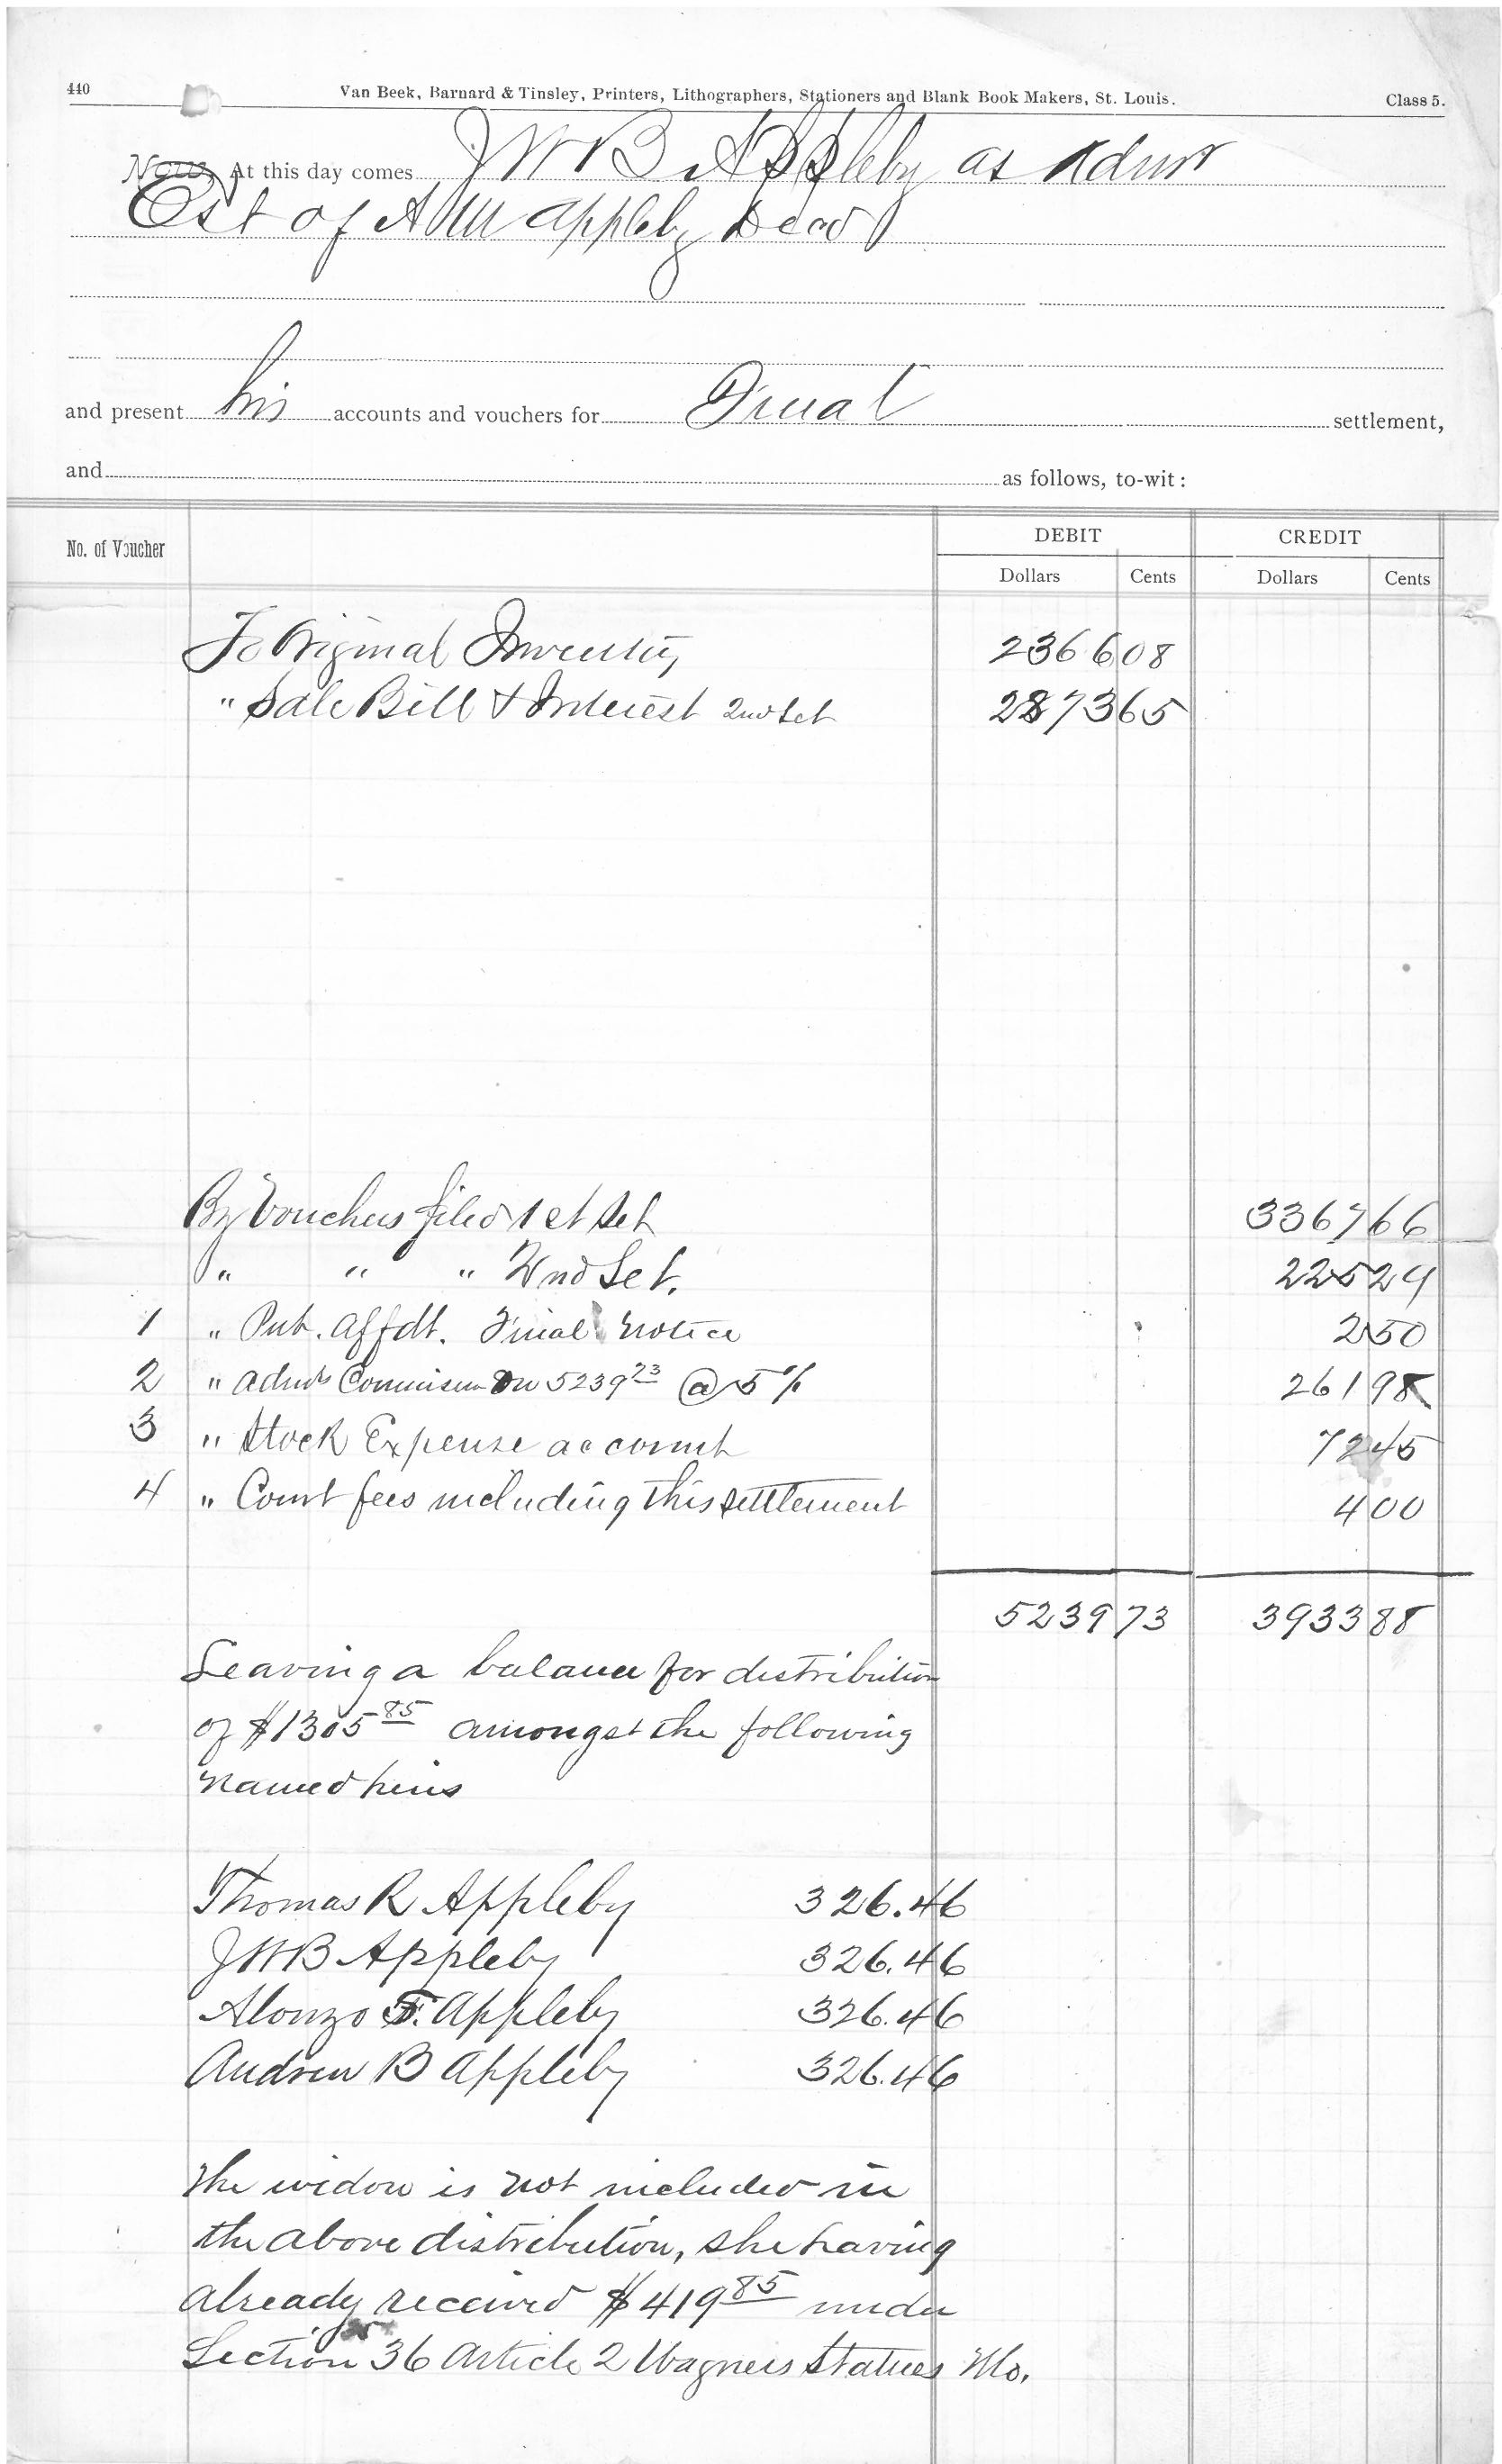 440 Van Beek, Barnard & Tinsley, Printers, Lithographers, Stationers and Blank Book Makers, St. Louis. Class 5.
Now, At this day comes J W B Appleby as Admr
Est of A M Appleby Decd
and present his accounts and vouchers for Final settlement,
and as follows, to-wit:
No. of Voucher DEBIT CREDIT
Dollars Cents Dollars Cents
To Original Inventory 2366 08
" Sale Bill & Interest 2nd Set 2873 65
By Vouchers filed 1st Set 3367 66
" " " 2nd Set. 225 29
1 " Pub. Affdt. Final Notice 2 50
2 " Admrs Commission On 5239 73 @ 5% 261 98
3 " Stock Expense account 72 45
4 " Court fees including this settlement 4 00
5239 73 3933 88
Leaving a balance for distribution
of $1305 85 amongst the following
Named heirs
Thomas R Appleby 326.46
JWB Appleby 326.46
Alonzo F. Appleby 326.46
Andrew B Appleby 326.46
The widow is not included in
the above distribution, she having
already received $419 85 under
Section 36 Article 2 Wagners Statues Mo.